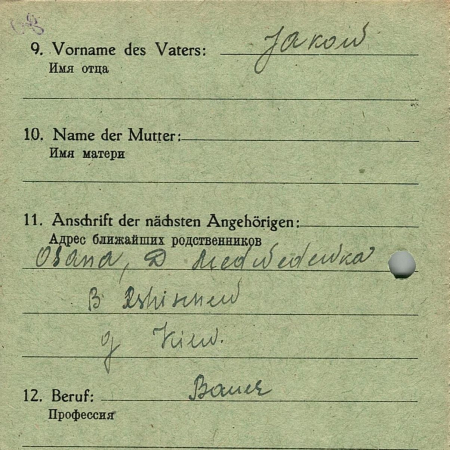 9. Vorname des Vaters: Jakow
Имя отца
10. Name der Mutter:
Имя матери
11. Anschrift der nächsten Angehörigen:
Адрес ближайших родственников
D Medwedewka
B
g Kiew.
12. Beruf: Bauer
Профессия